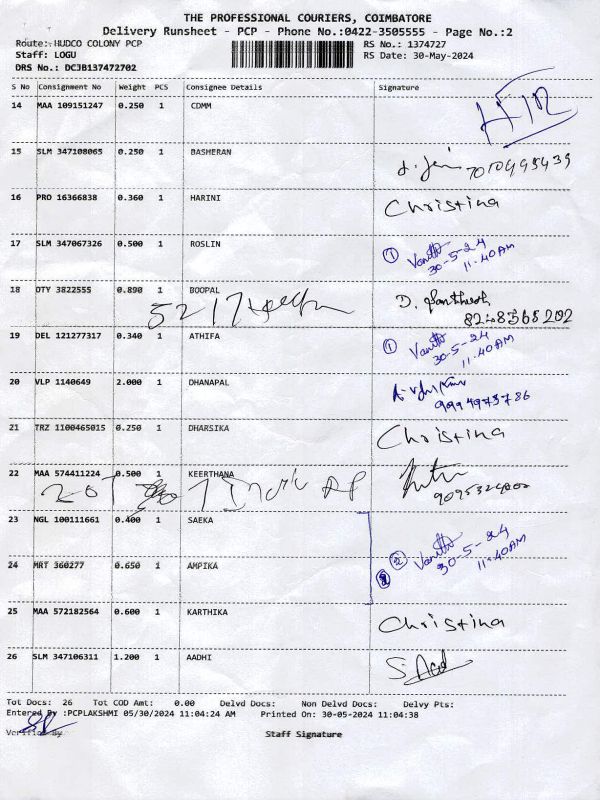 THE PROFESSIONAL COURIERS, COIMBATORE
Delivery Runsheet - PCP - Phone No.:0422-3505555 - Page No.:2
Route: HUDCO COLONY PCP
RS No.: 1374727
Staff: LOGU
RS Date: 30-May-2024
DRS No.: DCJB137472702
S No Consignment No Weight PCS Consignee Details Signature
14 MAA 109151247 0.250 1 CDMM
15 SLM 347108065 0.250 1 BASHERAN
7010495439
16 PRO 16366838 0.360 1 HARINI Christina
17 SLM 347067326 0.500 1 ROSLIN
1 Vanitha
30-5-24
11.40AM
18 DTY 3822555 0.890 1 BOOPAL
D. Santhosh
8248568202
5217
19 DEL 121277317 0.340 1 ATHIFA
1 Vanitha
30-5-24
11.40AM
20 VLP 1140649 2.000 1 DHANAPAL
9994973786
21 TRZ 1100465015 0.250 1 DHARSIKA Christina
22 MAA 574411224 0.500 1 KEERTHANA
23 NGL 100111661 0.400 1 SAEKA
2 Vanitha
30-5-24
11.40AM
24 MRT 360277 0.650 1 AMPIKA
25 MAA 572182564 0.600 1 KARTHIKA Christina
26 SLM 347106311 1.200 1 AADHI
Tot Docs: 26 Tot COD Amt: 0.00 Delvd Docs: Non Delvd Docs: Delvy Pts:
Entered By :PCPLAKSHMI 05/30/2024 11:04:24 AM Printed On: 30-05-2024 11:04:38
Verified By
Staff Signature